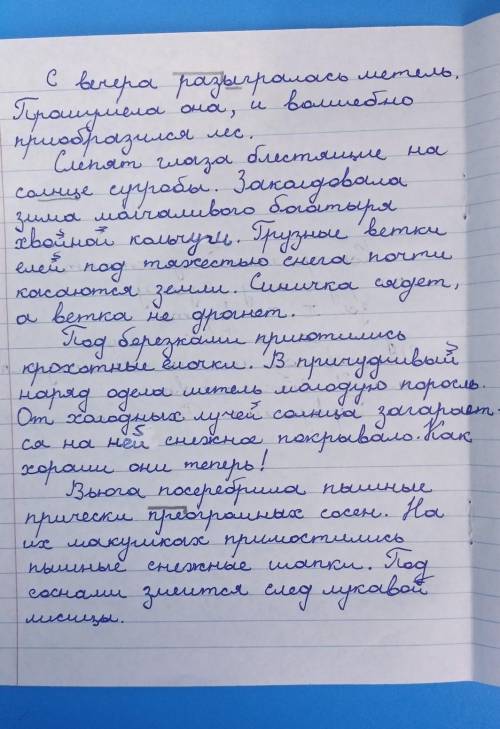 С вечера разыгралась метель.
Прошумела она, и волшебно
преобразился лес.
Слепят глаза блестящие на
солнце сугробы. Заколдовала
зима молчаливого богатыря
хвойной кольчуги. Грузные ветки
елей под тяжестью снега почти
касаются земли. Синичка сядет,
а ветка не дрогнет.
Под березками приютились
крохотные ёлочки. В причудливый
наряд одела метель молодую поросль.
От холодных лучей солнца загорает-
ся на ней снежное покрывало. Как
хороши они теперь!
Вьюга посеребрила пышные
прически преогромных сосен. На
их макушках примостились
пышные снежные шапки. Под
соснами змеится след лукавой
лисицы.